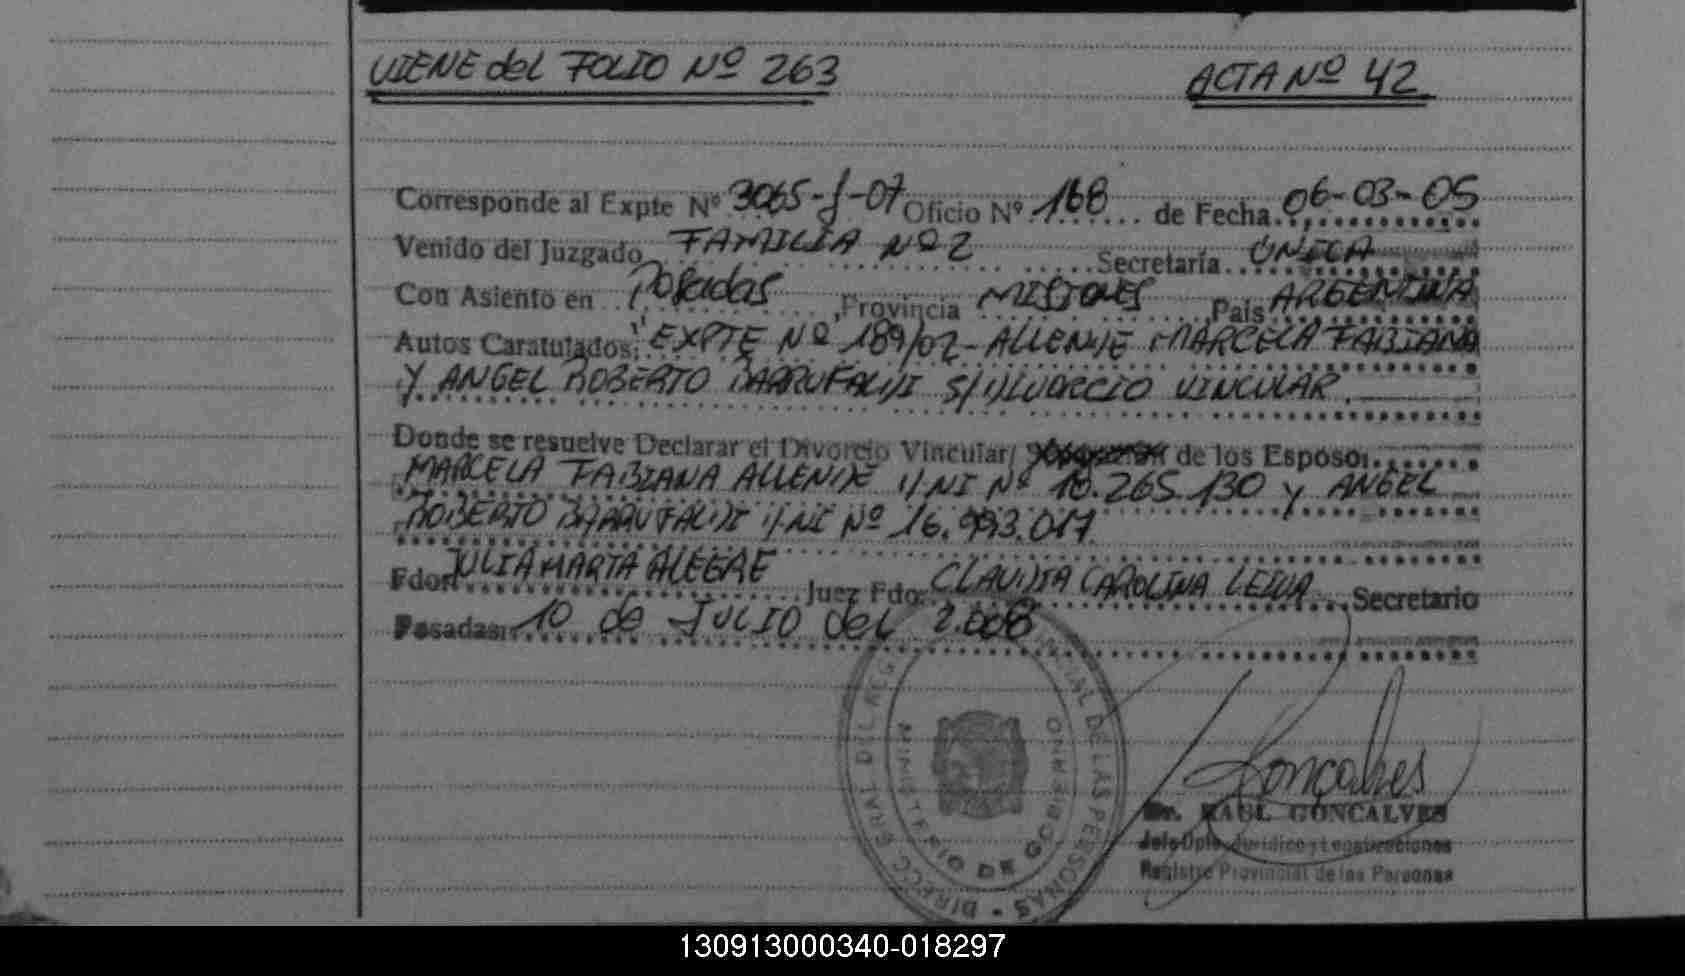 VIENE del FOLIO Nº 263 ACTA Nº 42
Corresponde al Expte Nº 3065-J-07 Oficio Nº 168 de Fecha 06-03-05
Venido del Juzgado FAMILIA Nº 2 Secretaría ÚNICA
Con Asiento en Posadas, Provincia MISIONES, País ARGENTINA
Autos Caratulados: "EXPTE Nº 189/02- ALLENDE MARCELA FABIANA
Y ANGEL ROBERTO BARRUFALDI S/DIVORCIO VINCULAR.
Donde se resuelve Declarar el Divorcio Vincular/ de los Esposo:
MARCELA FABIANA ALLENDE DNI Nº 18.265.130 y ANGEL
ROBERTO BARRUFALDI DNI Nº 16.993.017.
Fdo: JULIA MARTA ALEGRE Juez Fdo: CLAUDIA CAROLINA LEIVA Secretario
Posadas: 10 de JULIO del 2.008
DIRECC. GRAL DEL REG. PROVINCIAL DE LAS PERSONAS
MINISTERIO DE GOBIERNO
Goncalves
Dr. RAUL GONCALVES
Jefe Dpto. Jurídico y Legalizaciones
Registro Provincial de las Personas
130913000340-018297